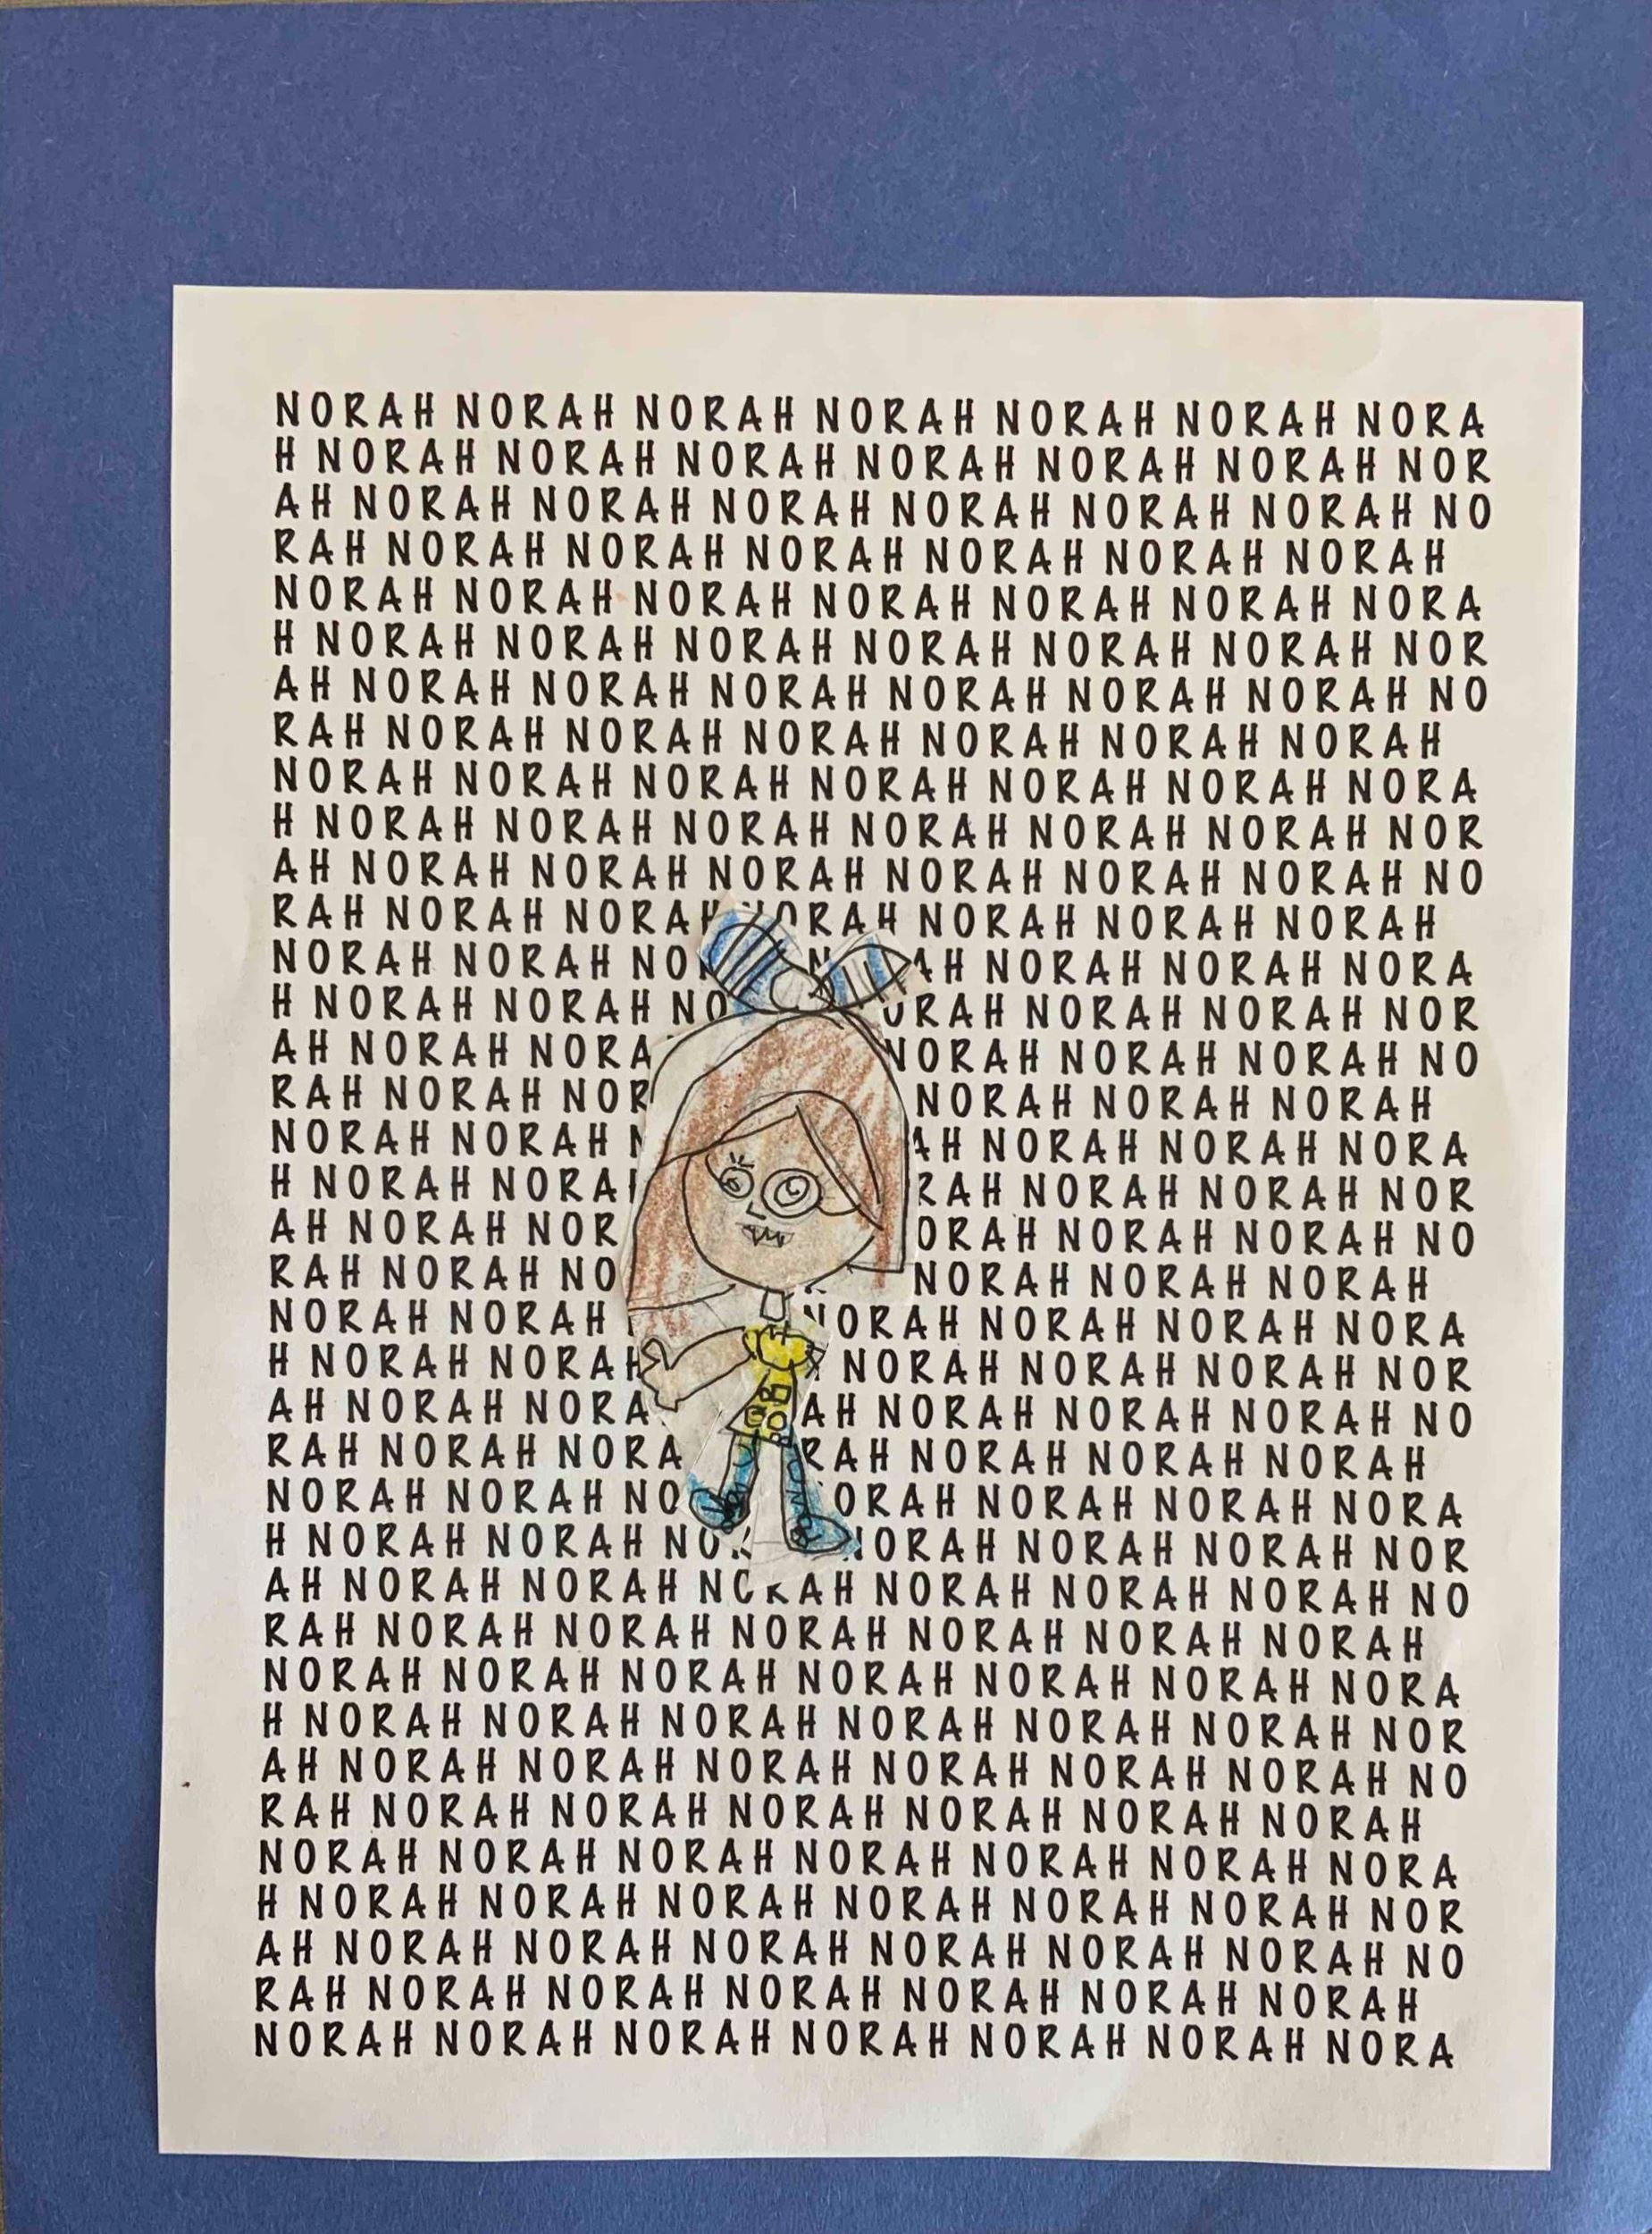 NORAH NORAH NORAH NORAH NORAH NORAH NORA
H NORAH NORAH NORAH NORAH NORAH NORAH NOR
AH NORAH NORAH NORAH NORAH NORAH NORAH NO
RAH NORAH NORAH NORAH NORAH NORAH NORAH
NORAH NORAH NORAH NORAH NORAH NORAH NORA
H NORAH NORAH NORAH NORAH NORAH NORAH NOR
AH NORAH NORAH NORAH NORAH NORAH NORAH NO
RAH NORAH NORAH NORAH NORAH NORAH NORAH
NORAH NORAH NORAH NORAH NORAH NORAH NORA
H NORAH NORAH NORAH NORAH NORAH NORAH NOR
AH NORAH NORAH NORAH NORAH NORAH NORAH NO
RAH NORAH NORAH NORAH NORAH NORAH NORAH
NORAH NORAH NO N AH NORAH NORAH NORA
H NORAH NORAH NO ORAH NORAH NORAH NOR
AH NORAH NORA NORAH NORAH NORAH NO
RAH NORAH NOR NORAH NORAH NORAH
NORAH NORAH N AH NORAH NORAH NORA
H NORAH NORA RAH NORAH NORAH NOR
AH NORAH NOR ORAH NORAH NORAH NO
RAH NORAH NO NORAH NORAH NORAH
NORAH NORAH NORAH NORAH NORAH NORA
H NORAH NORAH NORAH NORAH NORAH NOR
AH NORAH NORA AH NORAH NORAH NORAH NO
RAH NORAH NORA RAH NORAH NORAH NORAH
NORAH NORAH NO ORAH NORAH NORAH NORA
H NORAH NORAH NOR NORAH NORAH NORAH NOR
AH NORAH NORAH NORAH NORAH NORAH NORAH NO
RAH NORAH NORAH NORAH NORAH NORAH NORAH
NORAH NORAH NORAH NORAH NORAH NORAH NORA
H NORAH NORAH NORAH NORAH NORAH NORAH NOR
AH NORAH NORAH NORAH NORAH NORAH NORAH NO
RAH NORAH NORAH NORAH NORAH NORAH NORAH
NORAH NORAH NORAH NORAH NORAH NORAH NORA
H NORAH NORAH NORAH NORAH NORAH NORAH NOR
AH NORAH NORAH NORAH NORAH NORAH NORAH NO
RAH NORAH NORAH NORAH NORAH NORAH NORAH
NORAH NORAH NORAH NORAH NORAH NORAH NORA